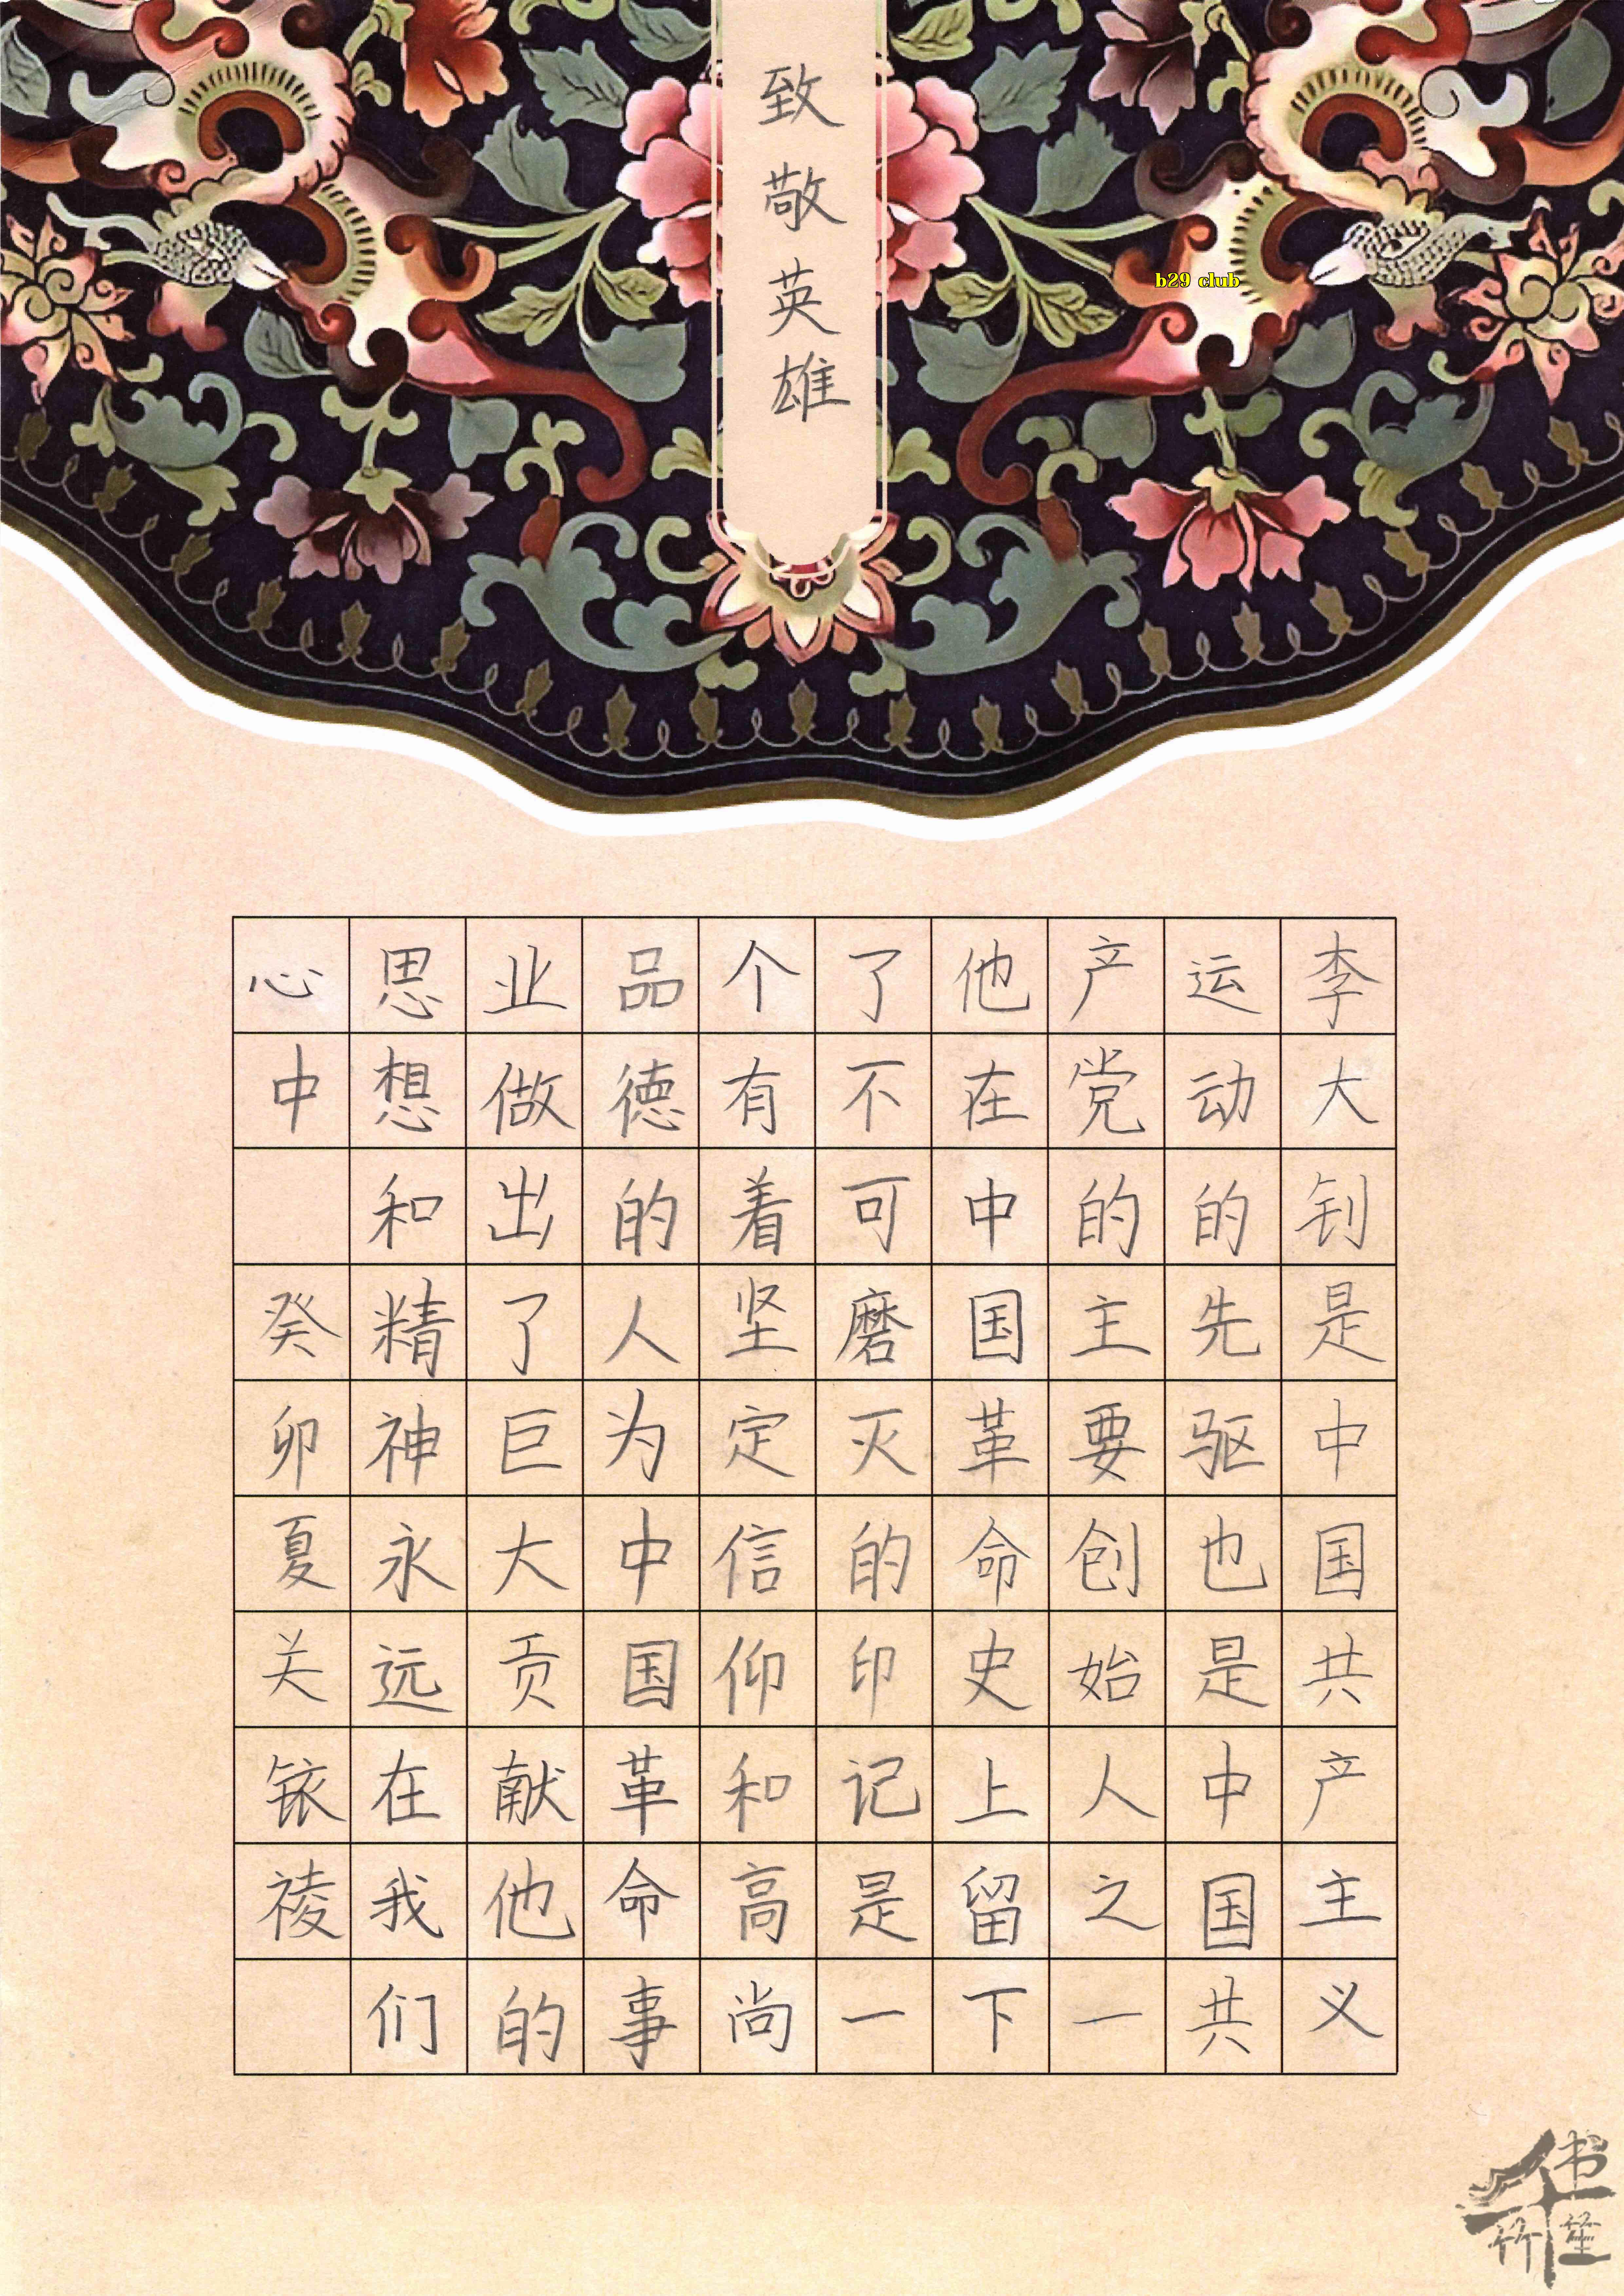 致敬英雄
b29 club
李大钊是中国共产主义
运动的先驱也是中国共
产党的主要创始人之一
他在中国革命史上留下
了不可磨灭的印记是一
个有着坚定信仰和高尚
品德的人为中国革命事
业做出了巨大贡献他的
思想和精神永远在我们
心中
癸卯夏关铱祾